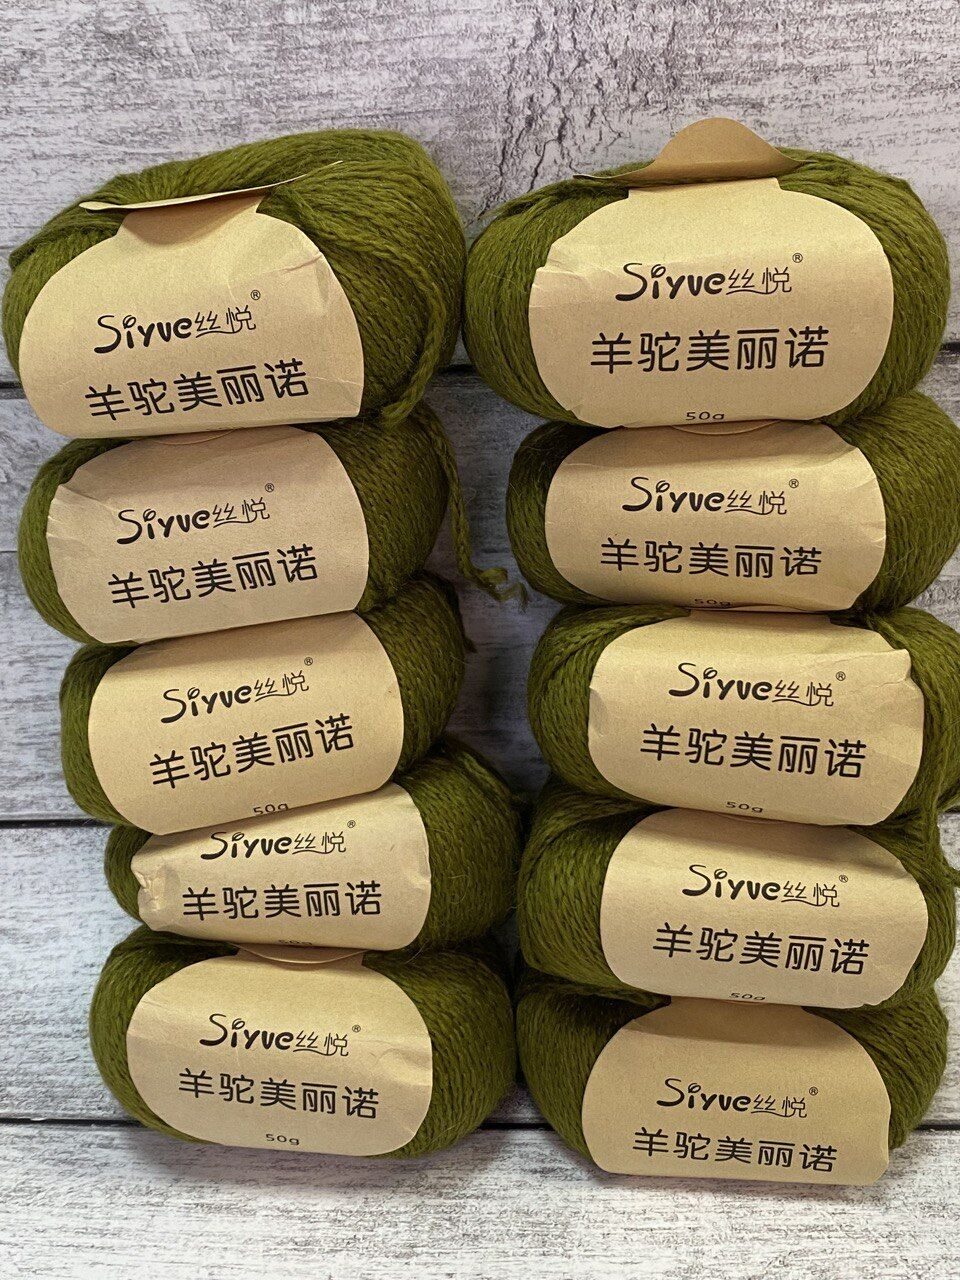 Siyue丝悦®
羊驼美丽诺
Siyue丝悦®
羊驼美丽诺
Siyue丝悦®
羊驼美丽诺
50g
Siyue丝悦®
羊驼美丽诺
50g
Siyue丝悦®
羊驼美丽诺
50g
Siyue丝悦®
羊驼美丽诺
50g
Siyue丝悦®
羊驼美丽诺
50g
Siyue丝悦®
羊驼美丽诺
50g
Siyue丝悦®
羊驼美丽诺
50g
Siyue丝悦®
羊驼美丽诺